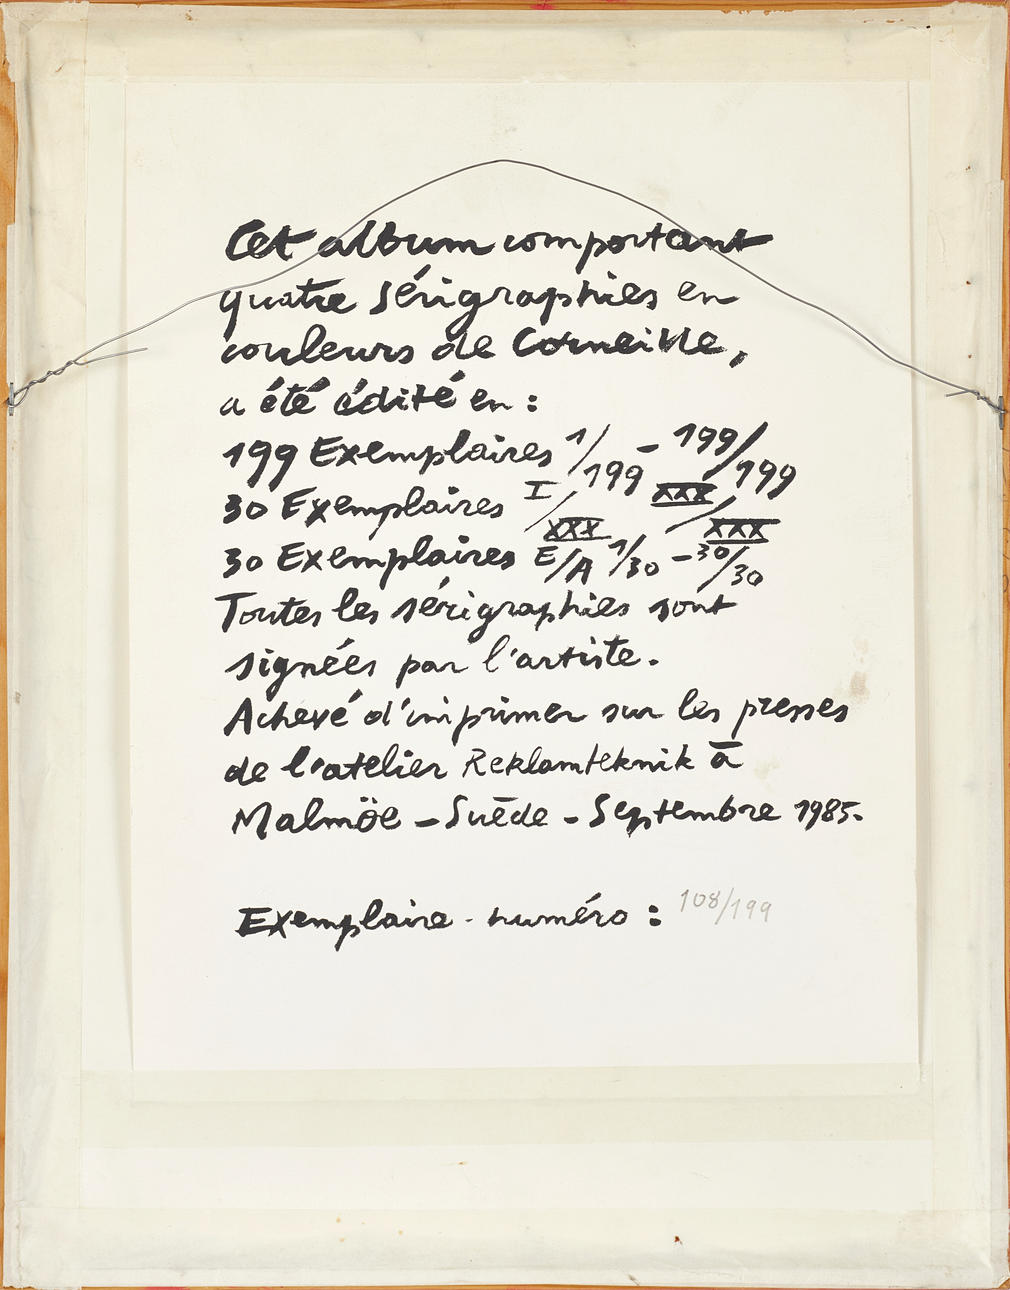 Cet album comportant
quatre sérigraphies en
couleurs de Corneille,
a été édité en :
199 Exemplaires 1/199 - 199/199
30 Exemplaires I/XXX - XXX/XXX
30 Exemplaires E/A 1/30 - 30/30
Toutes les sérigraphies sont
signées par l'artiste.
Achevé d'imprimer sur les presses
de l'atelier Reklamteknik à
Malmöe - Suède - Septembre 1985.
Exemplaire - numéro : 108/199